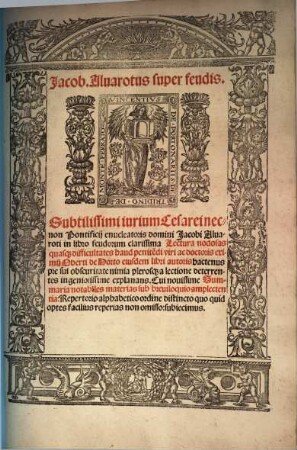 Jacob. Aluarotus super feudis.
VINCENTIVS
DE PORTONARIIS
DE TRIDINO DE
Subtilissimi iurium Cesarei nec
non Pontificii enucleatoris domini Jacobi Alua
roti in libro feudorum clarissima Lectura nodosas
quasq; difficultates haud permodici viri ac doctoris
Oberti de Horto eiusdem libri autoris hactenus
pre sui obscuritate nimia plerosq; a lectione deterren
tes ingeniosissime explanans. Cui nouissime Sum
maria notabiles materias sub breuiloquio amplecten
tia: Repertorio alphabetico ordine distincto quo quid
optes facilius reperias non omisso: subiecimus.